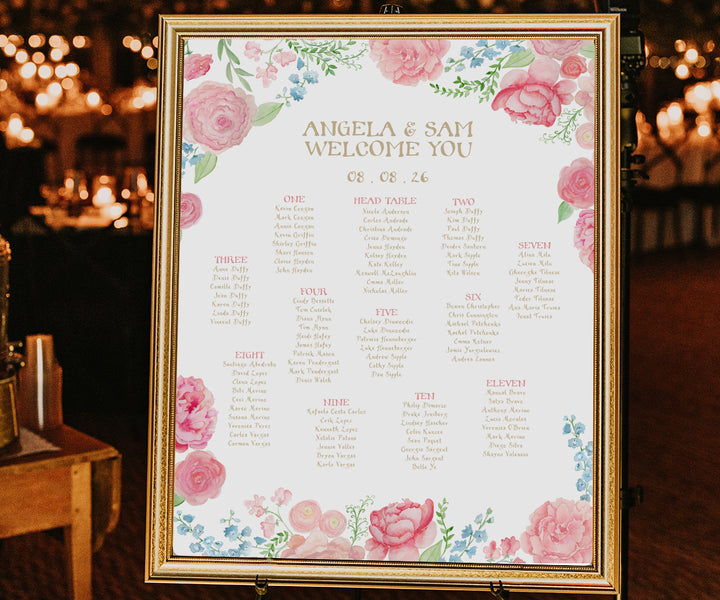 ANGELA & SAM
WELCOME YOU
08 . 08 . 26
ONE
Karen Cowgan
Mark Cowgan
Annie Cowgan
Kevin Griffin
Shirley Griffin
Shari Hansen
Elaine Hayden
John Hayden
HEAD TABLE
Nicole Andersen
Carlos Andrade
Christina Andrade
Erica Domingo
Jenna Hayden
Kelsey Hayden
Kate Kelley
Maxwell McLaughlin
Emma Miller
Nicholas Miller
TWO
Joseph Duffy
Kim Duffy
Paul Duffy
Thomas Duffy
Deidre Santoro
Mark Sipple
Tina Sipple
Rita Wilson
THREE
Anne Duffy
Denis Duffy
Camille Duffy
John Duffy
Karen Duffy
Linda Duffy
Vincent Duffy
FOUR
Cindy Dessette
Tom Custelak
Diana Flynn
Tim Flynn
Heidi Hafey
James Hafey
Patrick Mason
Karen Pendergast
Mark Pendergast
Denis Walsh
FIVE
Chelsey Dinwoodie
Luke Dinwoodie
Patricia Hunsberger
Luke Hunsberger
Andrew Sipple
Cathy Sipple
Dan Sipple
SIX
Bowen Christopher
Chris Cunnington
Rachel Potchenko
Rachel Potchenko
Emma Reiner
Jamie Yurgelevices
Andrea Lannes
SEVEN
Alina Mila
Lucian Mila
Gheorghe Tiliuase
Jenny Tiliuase
Marius Tiliuase
Tudor Tiliuase
Ana Maria Truasca
Ionut Truica
EIGHT
Santiago Abedrabo
David Lopez
Elena Lopez
Beto Merino
Ceci Merino
Marco Merino
Susana Merino
Veronica Perez
Carlos Vargas
Carmen Vargas
NINE
Rafaela Costa Carlos
Erik Lopez
Kenneth Lopez
Natalia Patane
Jennie Velles
Bryan Vargas
Karla Vargas
TEN
Philip Demase
Drake Jenburg
Lindsey Hascher
Colin Kunzer
Sean Paquet
Georgia Sargent
John Sargent
Belle Yo
ELEVEN
Manuel Bravo
Satya Bravo
Anthony Merino
Lucia Morales
Veronica O'Brien
Mark Merino
Diego Silva
Shayna Valencia